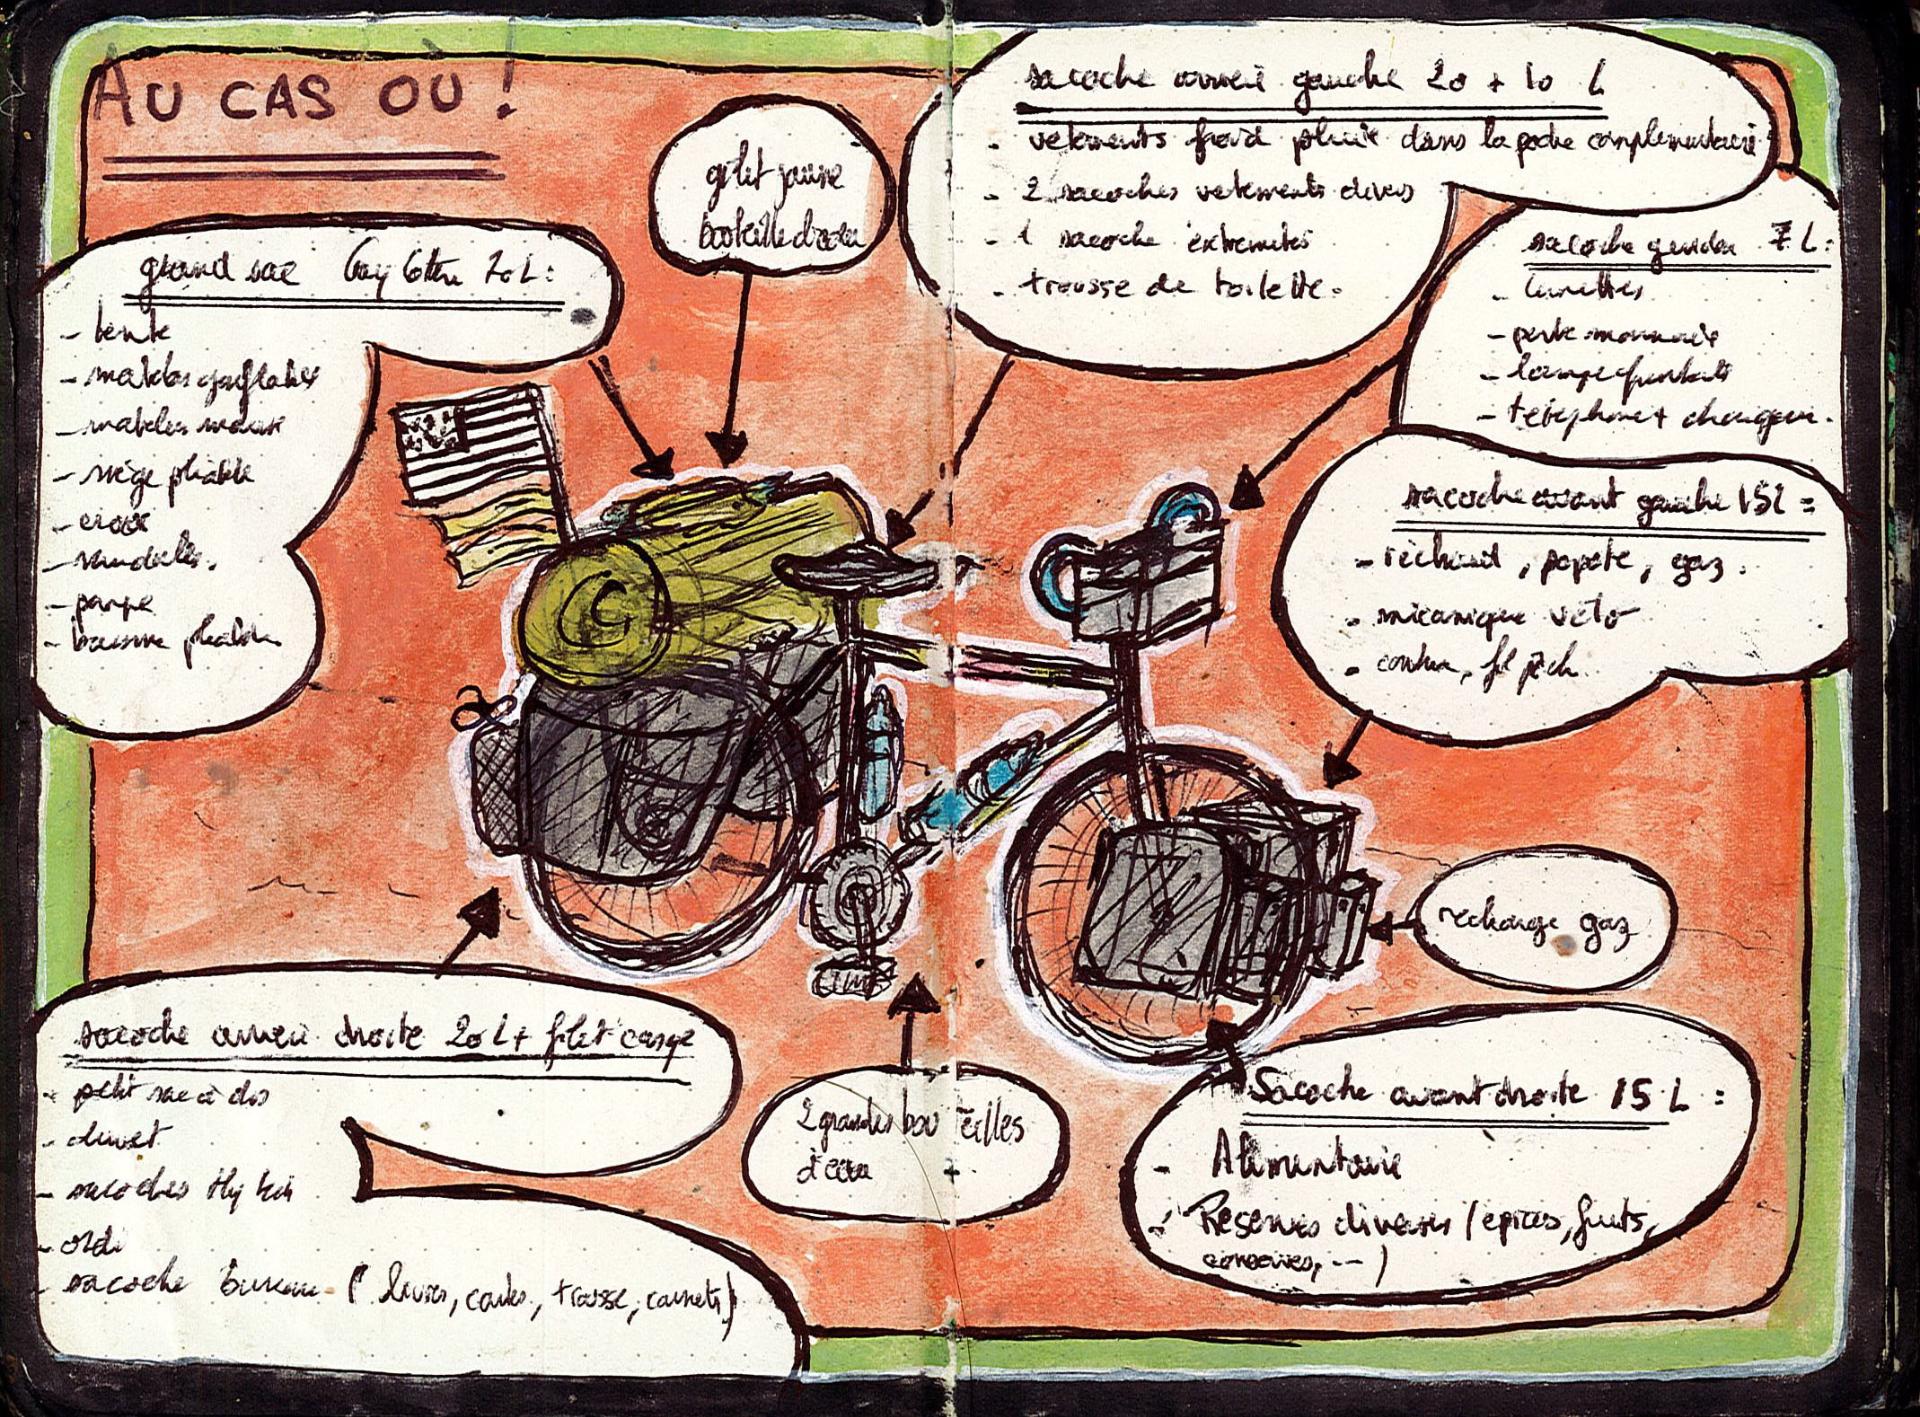 AU CAS OÙ !
gilet jaune
bouteille d'eau
sacoche arrière gauche 20 + 10 L
- vêtements froid pluie dans la poche complémentaire
- 2 sacoches vetements divers
- 1 sacoche extremités
- trousse de toilette.
sacoche guidon 7 L :
- lunettes
- porte monnaie
- lampe frontale
- téléphone + chargeur.
grand sac 70 L :
- tente
- matelas gonflable
- matelas mousse
- siège pliable
- crocs
- sandales.
- pompe
- bassine pliable
sacoche avant gauche 15L =
- réchaud, popote, gaz.
- mécanique vélo
- couture, fil pêche.
recharge gaz
sacoche arrière droite 20 L + filet casque
- petit sac à dos
- duvet
- sacoches
- ordi
- sacoche bureau ( livres, cartes, trousse, carnets)
2 grandes bouteilles
d'eau
Sacoche avant droite 15 L :
- Alimentaire
- Réserves diverses (épices, fruits,
conserves, --- )